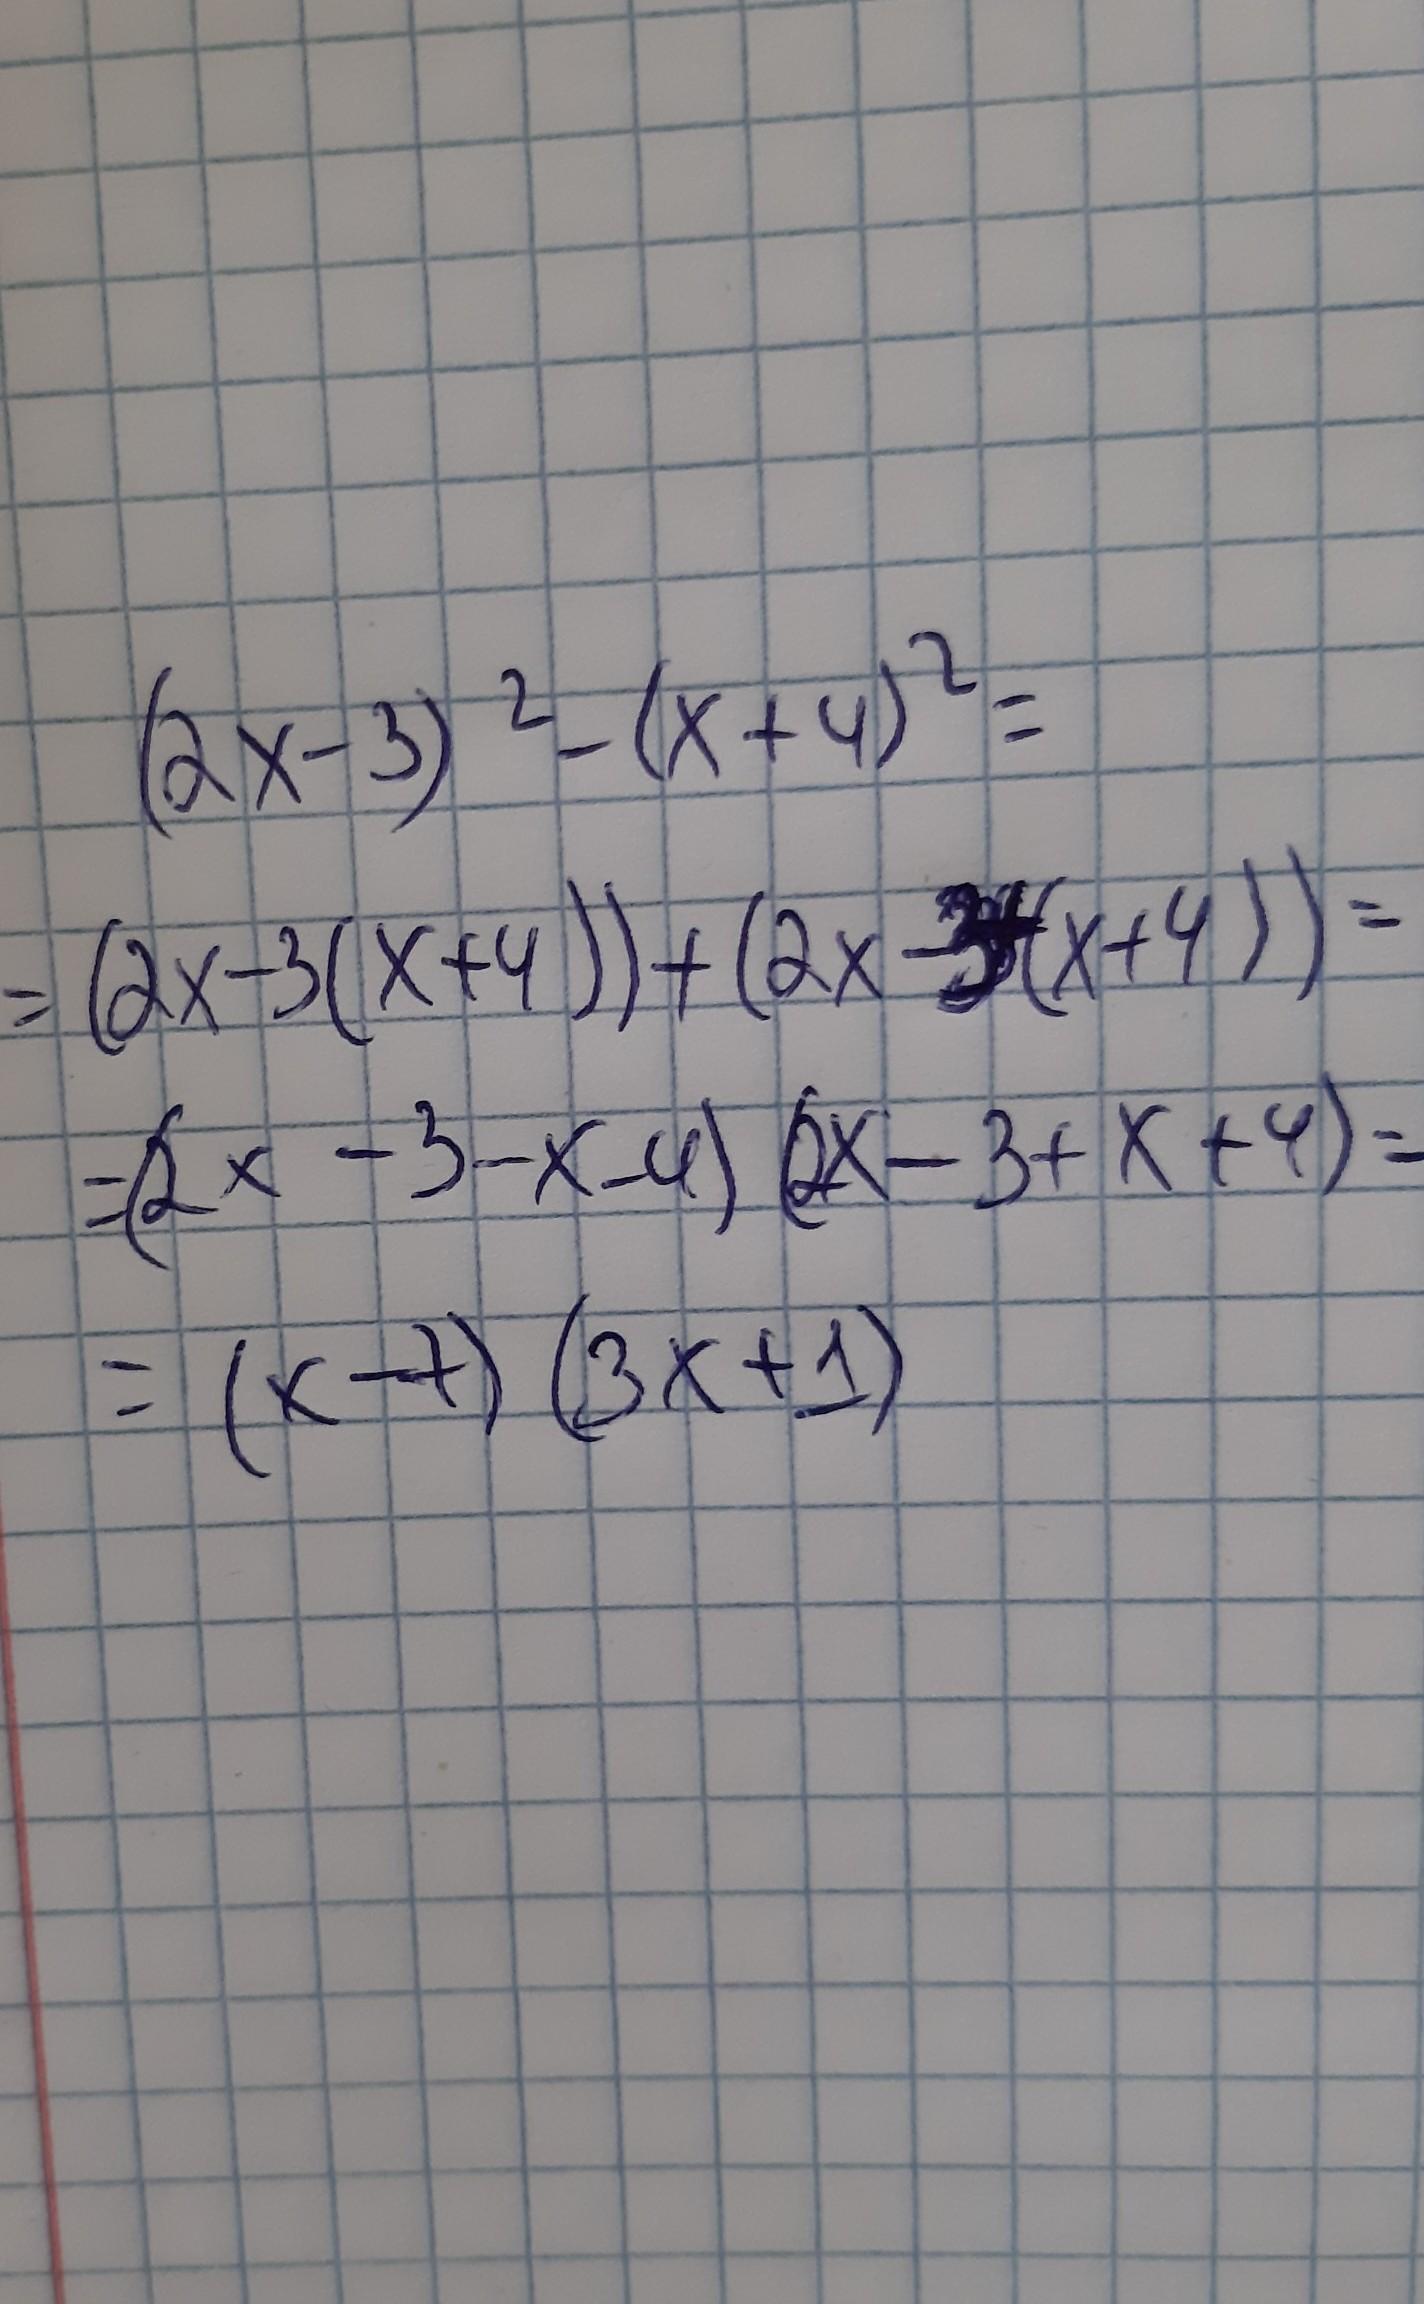 (2x-3)² - (x+4)² =
= (2x-3(x+4)) + (2x-3(x+4)) =
= (2x-3-x-4) (2x-3+x+4) =
= (x-7) (3x+1)